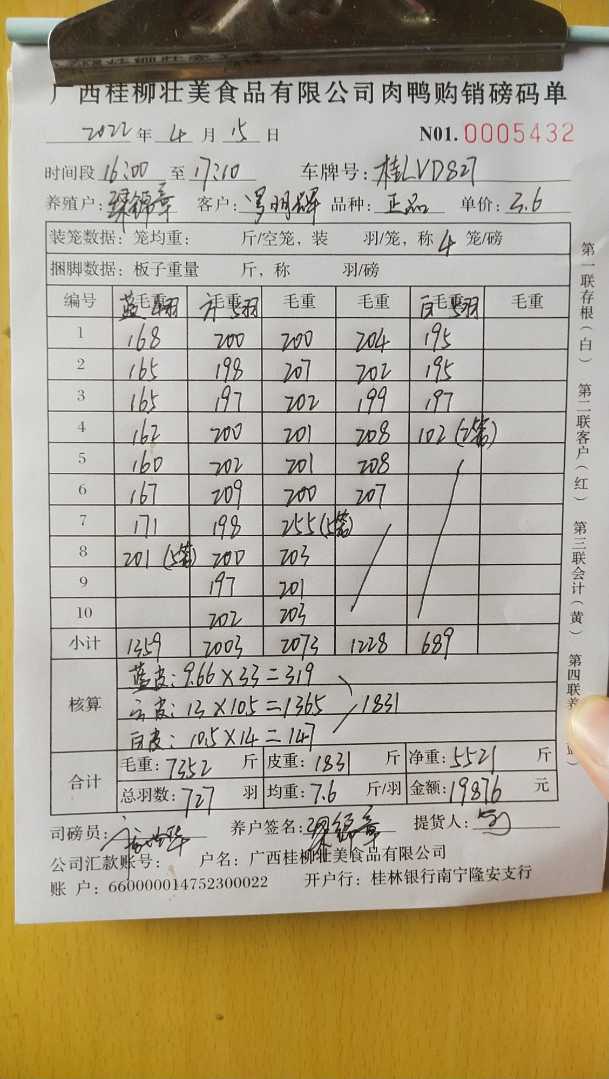 广西桂柳壮美食品有限公司肉鸭购销磅码单
2022 年 4 月 15 日 N01. 0005432
时间段 16:00 至 17:10 车牌号: 桂LVD827
养殖户: 梁锦章 客户: 品种: 正品 单价: 3.6
装笼数据: 笼均重: 斤/空笼, 装 羽/笼, 称 4 笼/磅
捆脚数据: 板子重量 斤, 称 羽/磅
编号 毛重 毛重 毛重 毛重 毛重 毛重
1 168 200 200 204 195
2 165 198 207 202 195
3 165 197 202 199 197
4 162 200 201 208 102 (2笼)
5 160 202 201 208
6 167 209 200 207
7 171 198 255 (5笼)
8 201 (5笼) 200 203
9 197 201
10 202 203
小计 1359 2003 2073 1228 689
核算
蓝皮: 9.66 × 33 = 319
皮: 13 × 105 = 1365 1831
白皮: 10.5 × 14 = 147
合计
毛重: 7352 斤 皮重: 1831 斤 净重: 5521 斤
总羽数: 727 羽 均重: 7.6 斤/羽 金额: 19876 元
司磅员: 养户签名: 梁锦章 提货人:
公司汇款账号: 户名: 广西桂柳壮美食品有限公司
账 户: 660000014752300022 开户行: 桂林银行南宁隆安支行
第一联存根(白) 第二联客户(红) 第三联会计(黄) 第四联养